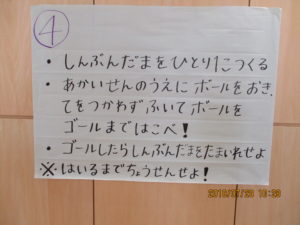 ④
・しんぶんだまをひとり1こつくる
・あかいせんのうえにボールをおき、
てをつかわずふいてボールを
ゴールまではこべ!
・ゴールしたらしんぶんだまをたまいれせよ
※はいるまでちょうせんせよ!